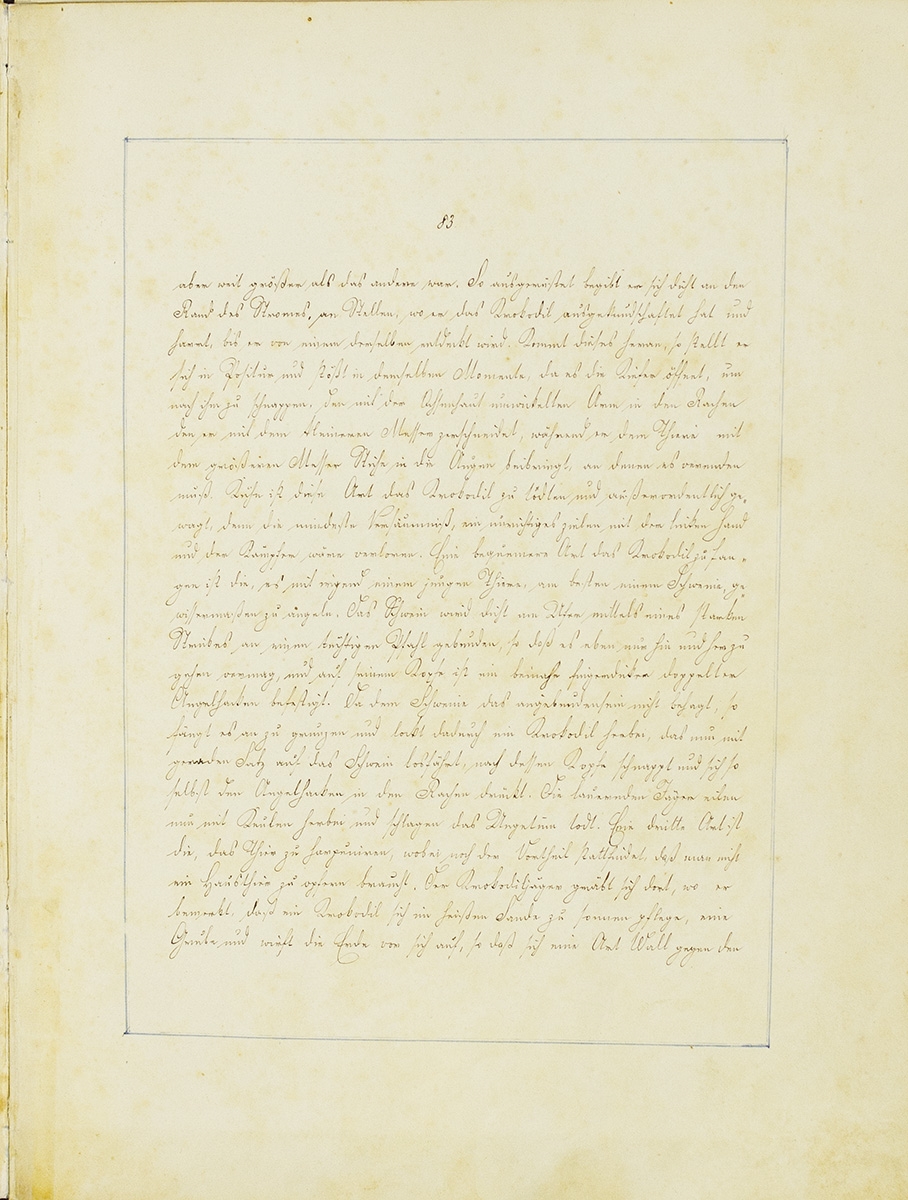 83
aber weit größer als das andere war. So ausgerüstet begibt er sich dicht an den
Rand des Stromes, an Stellen, wo er das Krokodil ausgekundschaftet hat und
harrt, bis er von einem derselben entdeckt wird. Kommt dieses heran, so stellt er
sich in Positur und stößt in demselben Momente, da es die Kiefer öffnet, um
nach ihm zu schnappen, den mit der Ochsenhaut umwickelten Arm in den Rachen
den er mit dem kleineren Messer zerschneidet, während er dem Thiere mit
dem größeren Messer Stiche in die Augen beibringt, an denen es verenden
muß. Kühn ist diese Art das Krokodil zu tödten und außerordentlich ge-
wagt, denn die mindeste Versäumniß, ein unrichtiges zielen mit der linken Hand
und der Kämpfer wäre verloren. Eine bequemere Art das Krokodil zu fan-
gen ist die, es mit irgend einem jungen Thiere, am besten einem Schweine, ge-
wissermaßen zu angeln. Das Schwein wird dicht am Ufer mittels eines starken
Strickes an einen tüchtigen Pfahl gebunden, so daß es eben nur hin und her zu
gehen vermag, und auf seinem Kopfe ist ein beinahe fingerdicker doppelter
Angelhacken befestigt. Da dem Schweine das angebundensein nicht behagt, so
fängt es an zu grunzen und lockt dadurch ein Krokodil herbei, das nun mit
geraden Satz auf das Schwein losfährt, nach dessen Kopfe schnappt und sich so
selbst den Angelhacken in den Rachen drückt. Die lauernden Jäger eilen
nun mit Keulen herbei und schlagen das Ungetüm todt. Eine dritte Art ist
die, das Thier zu harpuniren, wobei noch der Vortheil stattfindet, daß man nicht
ein Hausthier zu opfern braucht. Der Krokodiljäger gräbt sich dort, wo er
bemerkt, daß ein Krokodil sich im heißen Sande zu sonnen pflege, eine
Grube und wirft die Erde vor sich auf, so daß sich eine Art Wall gegen den